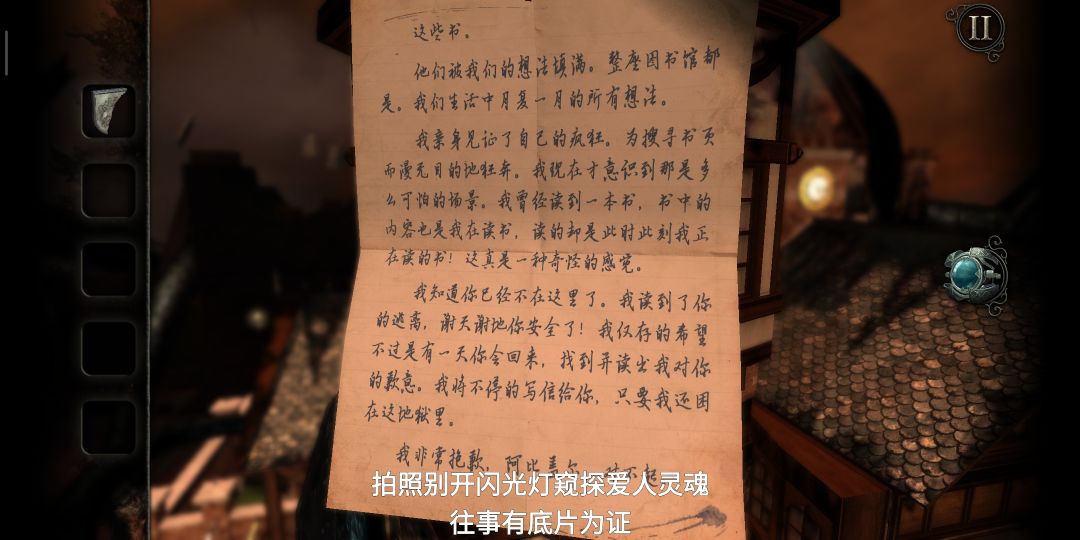 这些书。
他们被我们的想法填满。整座图书馆都
是。我们生活中月复一月的所有想法。
我亲身见证了自己的疯狂。为搜寻书页
而漫无目的地狂奔。我现在才意识到那是多
么可怕的场景。我曾经读到一本书，书中的
内容也是我在读书，读的却是此时此刻我正
在读的书！这真是一种奇怪的感觉。
我知道你已经不在这里了。我读到了你
的逃离，谢天谢地你安全了！我仅存的希望
不过是有一天你会回来，找到并读出我对你
的歉意。我将不停的写信给你，只要我还困
在这地狱里。
我非常抱歉，阿比盖尔，对不起
拍照别开闪光灯窥探爱人灵魂
往事有底片为证
II